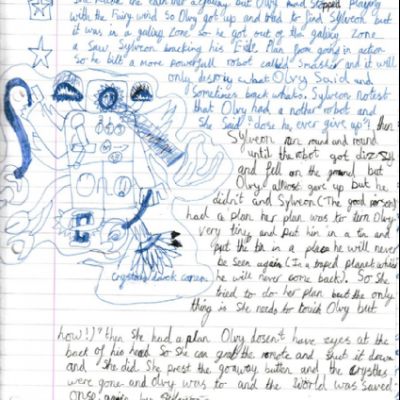 but Olvy had stopped playing
with the Fairy wind so Olvy got up and tried to find Sylveon but
it was in a galaxy zone so he got out of the galaxy zone
a saw Sylveon his Evil Plan from going in action
So he bilt a more powerfull robot called Smasher and it will
only destroy what Olvy said and
Sometimes back whats. Sylveon notest
that Olvy had a nother robot and
She said "dose he ever give up"! then
Sylveon ran round and round
until the robot got diz
and fell on the ground but
Olvy allmost gave up but he
didn't and Sylveon (The good person)
had a plan her plan was to tern Olvy
very tiny and put him in a tin and
put the tin in a place he will never
be seen again (In a traped planet where
he will never come back). So she
tried to do her plan but the only
thing is She needs to touch Olvy but
crystal canon
how!)" then She had a plan Olvy dosen't have eyes at the
back of his head So She can grab the remote and shut it down
and She did. She prest the goaway buten and the crystles
were gone and Olvy was to and the world was saved
onse again by Sylveon